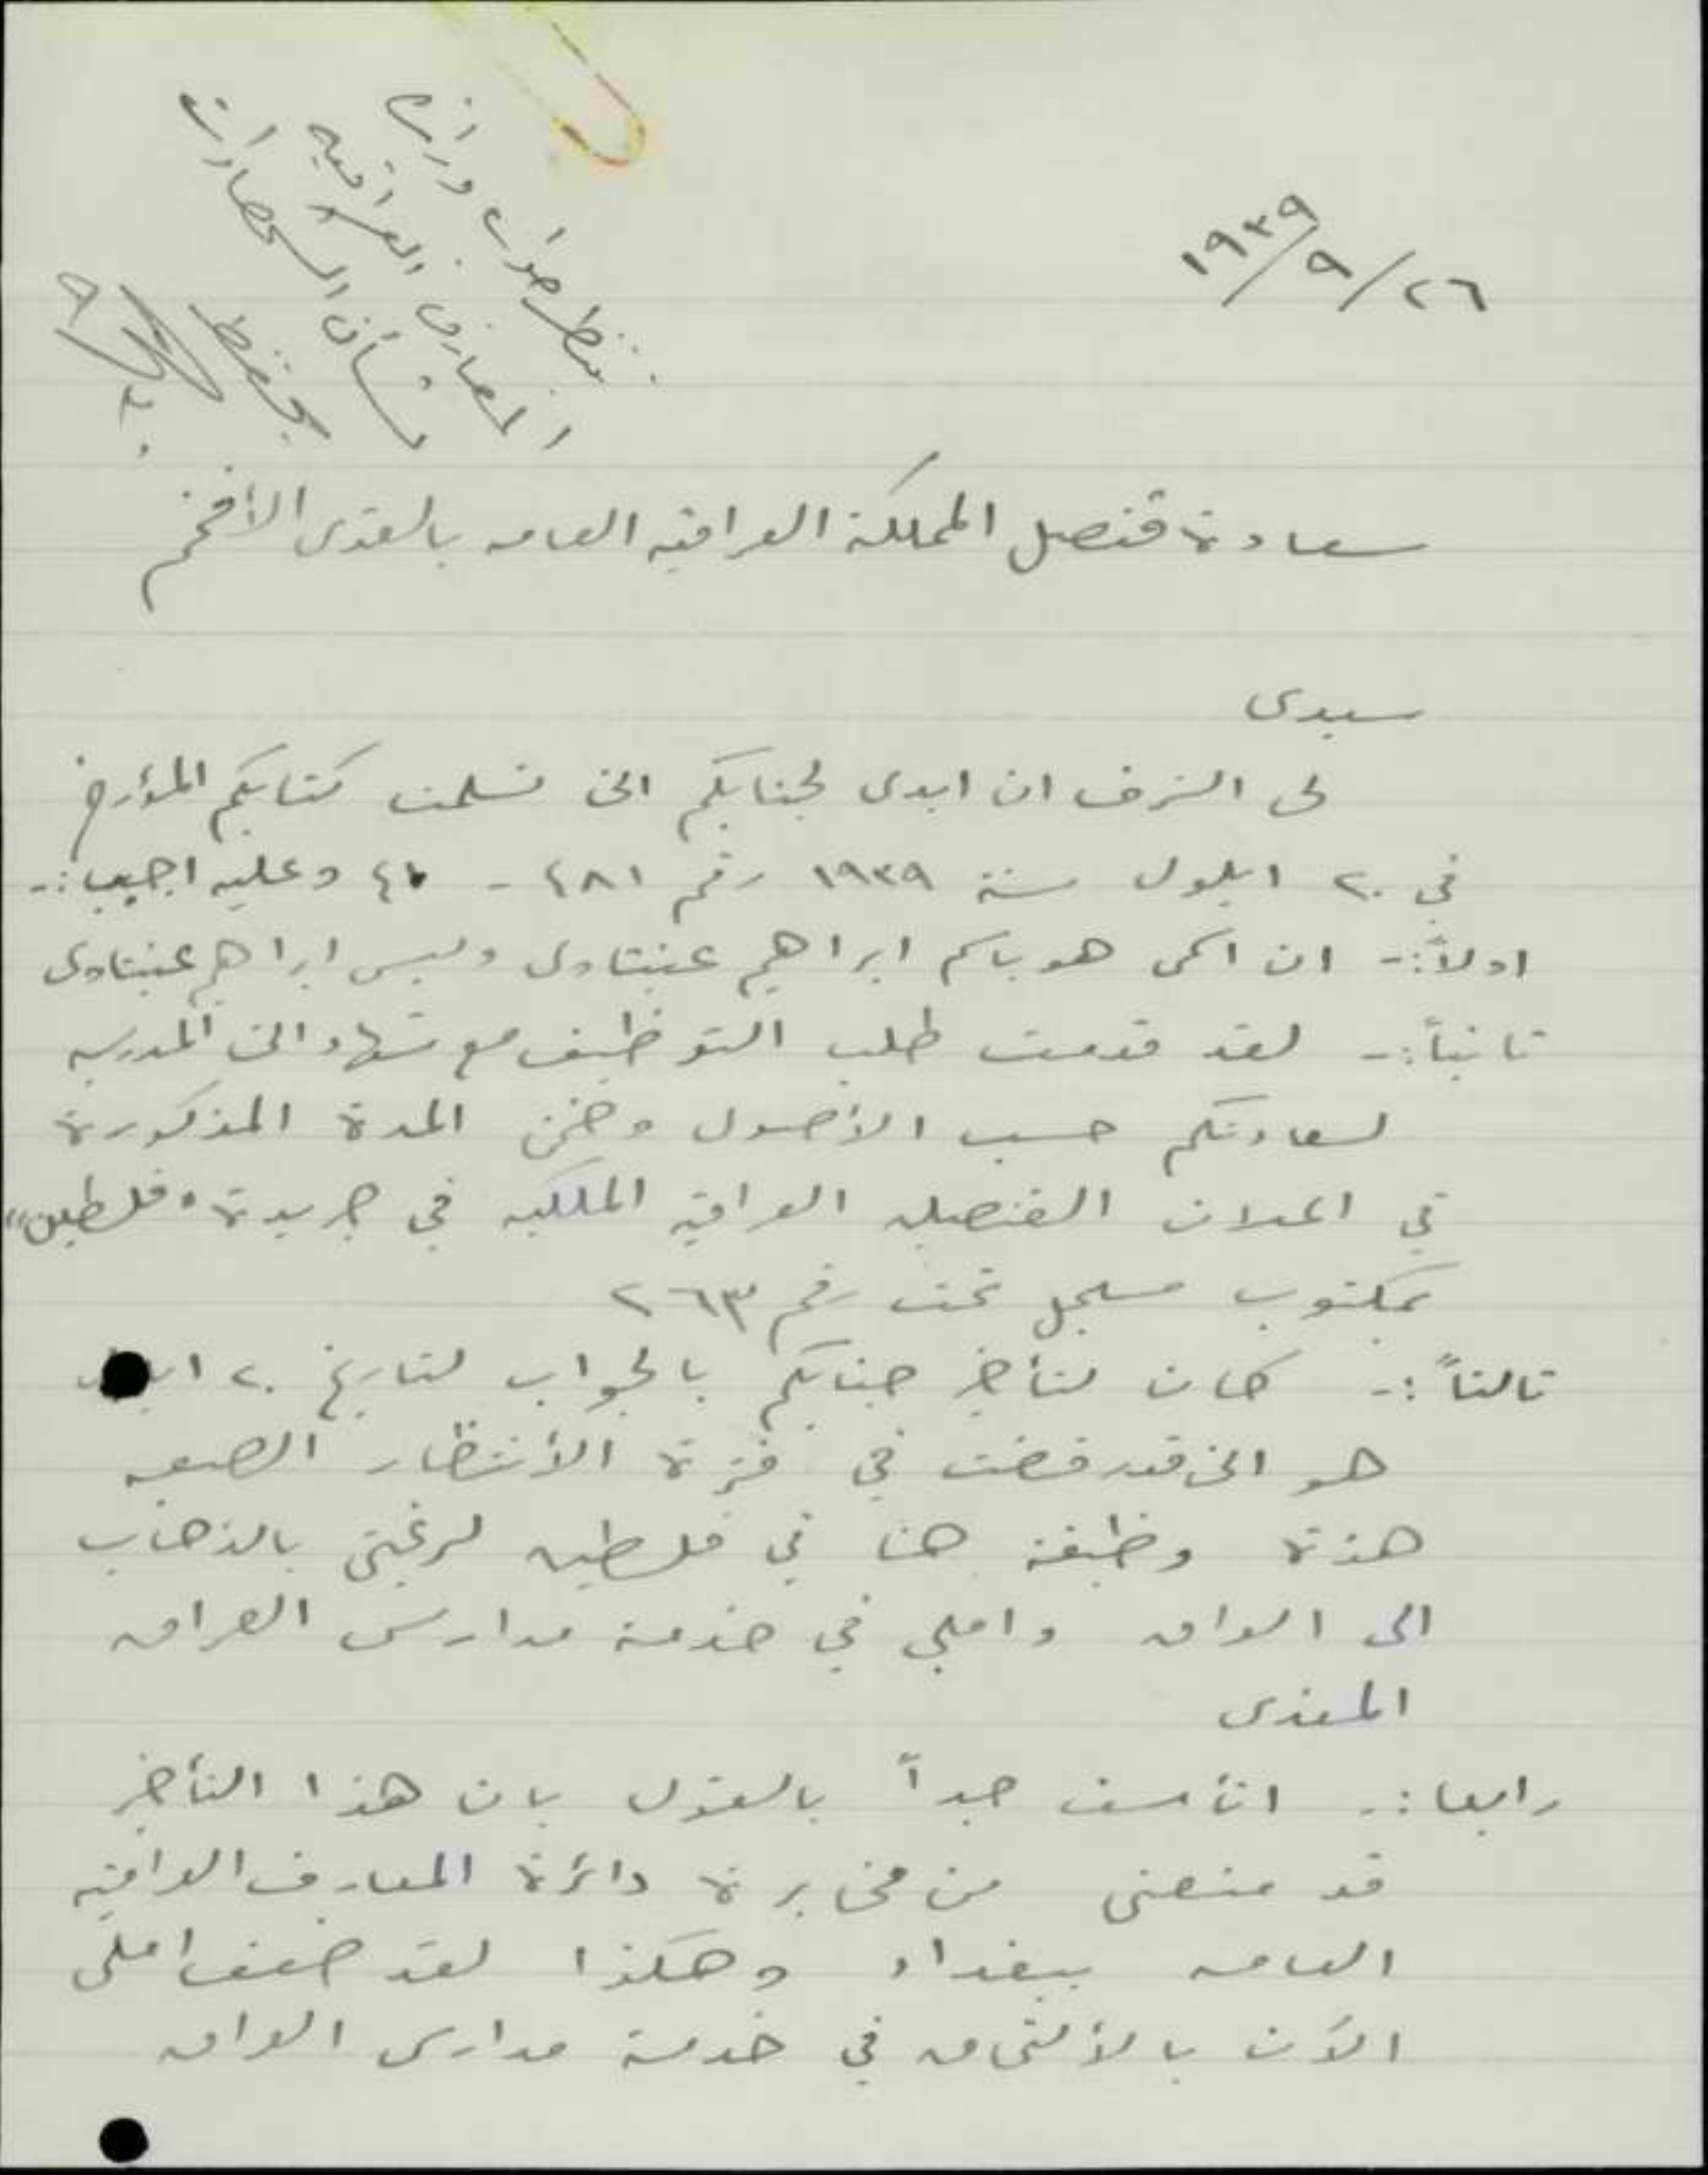 ٢٦/٩/١٩٣٩
ننتظر جواب وزارة
المعارف العراقية
بشأن استحصار
يحفظ
سعادة قنصل المملكة العراقيه العامه بالقدس الأفخم
سيدى
لى الشرف ان ابدى لجنابكم انى تسلمت كتابكم المؤرخ
في ٢٠ ايلول سنة ١٩٣٩ رقم ٤٨١ - وعليه اجيب :-
اولاً :- ان اسمى هو باسم ابراهيم عنبتاوى وليس ابراهيم عنبتاوى
ثانياً :- لقد قدمت طلب التوظيف مع شهاداتى المدرسيه
لسعادتكم حسب الأصول وضمن المدة المذكورة
في اعلان القنصليه العراقيه الملكيه في جريدة "فلسطين"
بمكتوب مسجل تحت رقم ٢٦٣
ثالثاً :- كان لتأخر جنابكم بالجواب لتاريخ ٢٠
هو انى قد رفضت في فترة الأنتظار الصعبه
هذة وظيفة هنا في فلسطين لرغبتى بالذهاب
الى العراق واملي في خدمة مدارس العراق
المفدى
رابعا :- اتأسف جداً بالقول بان هذا التأخر
قد منعنى من مخابرة دائرة المعارف العراقيه
العامه ببغداد وهكذا لقد ضعف املى
الآن بالألتحاق في خدمة مدارس العراق